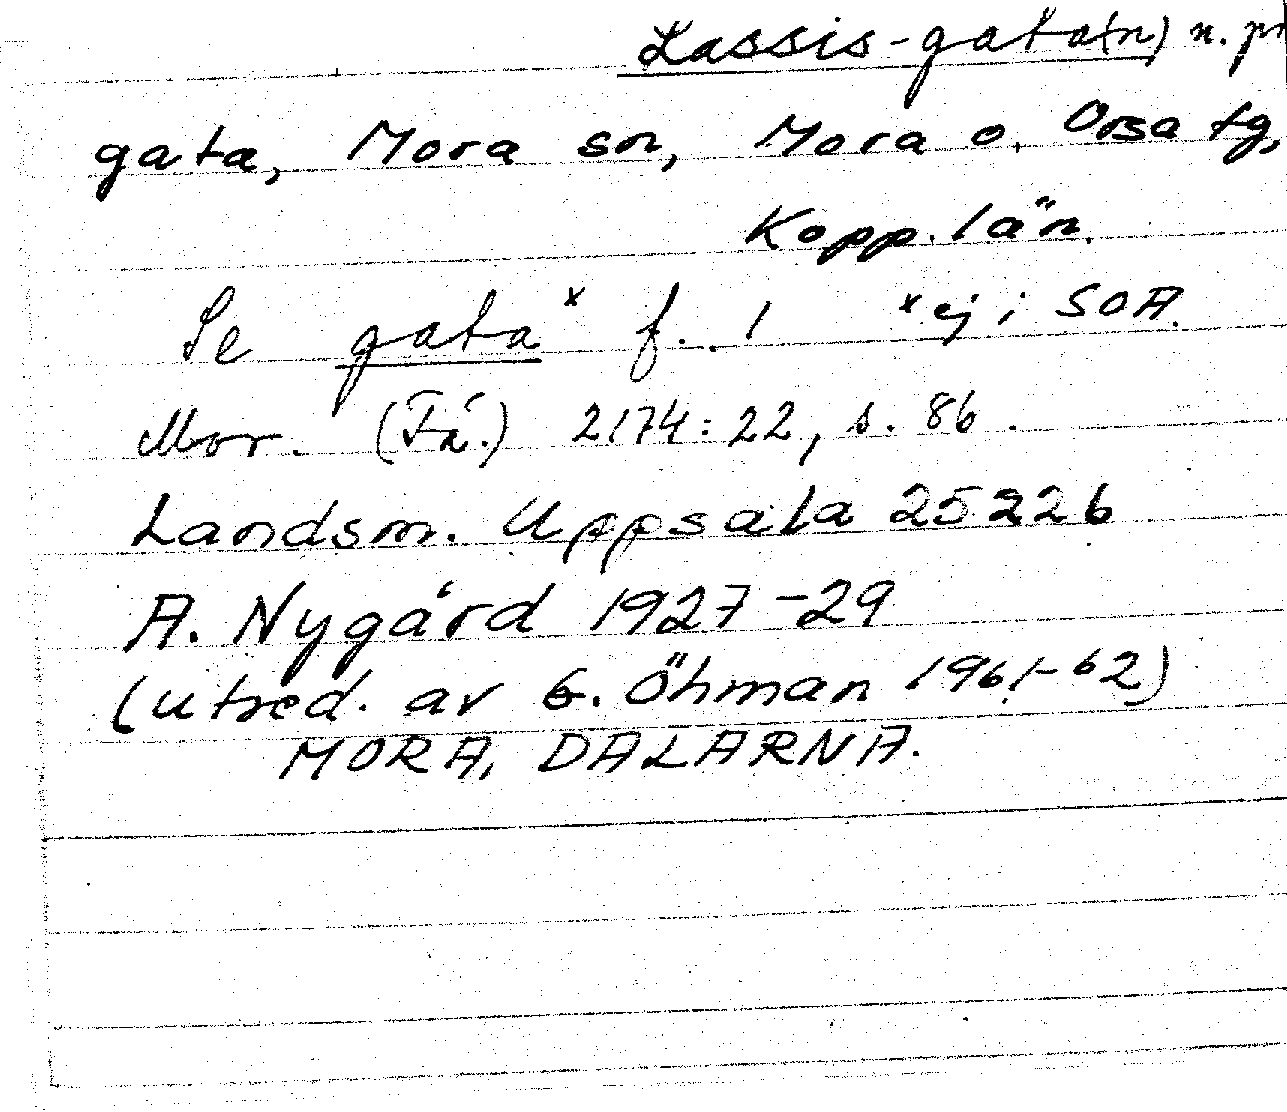 Lassis-gata(n) n. pr
gata, Mora sn, Mora o. Orsa tg,
Kopp. län.
Se gata x f. 1 x ej i SOA.
Mor. (Fä.) 2174:22, s. 86.
Landsm. Uppsala 25226
A. Nygård 1927-29
(utred. av G. Öhman 1961-62)
MORA, DALARNA.